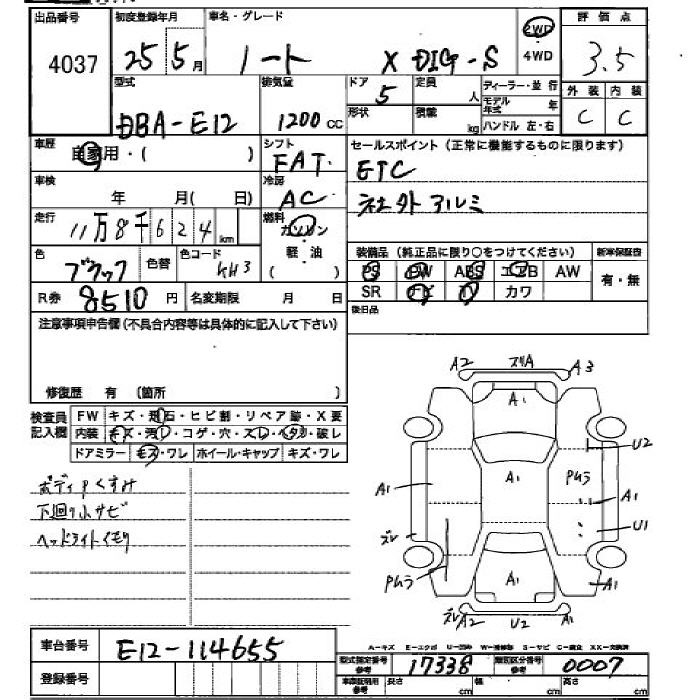 出品番号 初度登録年月 車名・グレード 2WD 評価点
4037 25年5月 ノート X DIG-S 4WD 3.5
型式 排気量 ドア 定員 ディーラー・並行 外装 内装
DBA-E12 1200cc 5 人 モデル年式 年 C C
形状 積載 kg ハンドル 左・右
車歴 自家用・( ) シフト FAT セールスポイント(正常に機能するものに限ります)
車検 年 月( 日) 冷房 AC ETC
走行 11万8千624km 燃料 ガソリン 社外アルミ
軽・油
( )
色 ブラック 色替 色コード KH3 装備品(純正品に限り○をつけてください) 新車保証書
PS PW ABS エアB AW 有・無
R券 8510円 名変期限 月 日 SR ナビ TV カワ
注意事項申告欄(不具合内容等は具体的に記入して下さい) 後日品
修復歴 有 (箇所 )
検査員記入欄 FW キズ・飛石・ヒビ割・リペア跡・X要
内装 キズ・汚レ・コゲ・穴・スレ・ヘタリ・破レ
ドアミラー キズ・ワレ ホイール・キャップ キズ・ワレ
ボディPくすみ
下廻り小サビ
ヘッドライトくもり
A2 ズリA A3
A1
U2
A1 A1 Pムラ A1
ズレ U1
Pムラ A1 A1
ズレ A2 U2 A1
車台番号 E12-114655
A-キズ E-エクボ U-凹み W-補修跡 S-サビ C-腐食 XX-交換済
登録番号 型式指定番号 参考 17338 類別区分番号 参考 0007
車庫証明用 参考 長さ cm 幅 cm 高さ cm